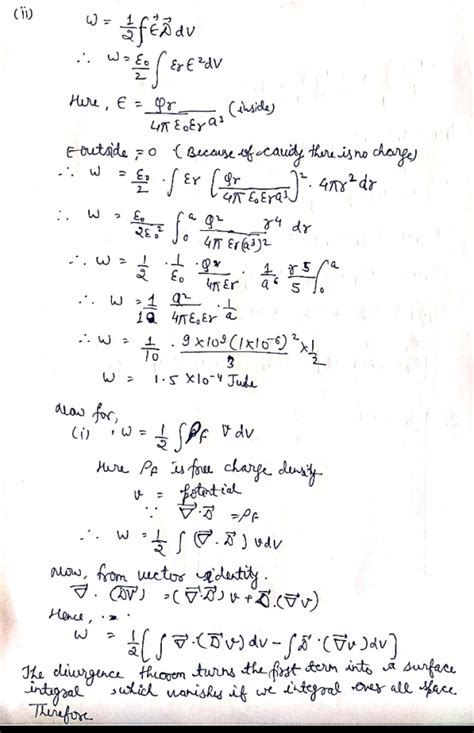 (ii) W = 1/2 ∫ E⃗ D⃗ dv
∴ W = ε₀/2 ∫ εr E² dV
Here, E = qr / 4π ε₀ εr a³ (inside)
E outside = 0 (Because of cavity there is no charge)
∴ W = ε₀/2 · ∫ εr [qr / 4π ε₀ εr a³]² · 4πr² dr
∴ W = ε₀/2ε₀² ∫₀ᵃ q² / 4π εr (a³)² r⁴ dr
∴ W = 1/2 · 1/ε₀ · q² / 4π εr · 1/a⁶ r⁵/5 ∫₀ᵃ
∴ W = 1/10 q² / 4π ε₀ εr · 1/a
∴ W = 1/10 · 9 × 10⁹ (1×10⁻⁶)² / 3 × 1/2
W = 1.5 × 10⁻⁴ Jule
Now for,
(i) , W = 1/2 ∫ ρF V dv
Here ρF is free charge density
v = potential
∵ ∇⃗ · D⃗ = ρF
∴ W = 1/2 ∫ (∇⃗ · D⃗) v dv
Now, from vector identity.
∇⃗ · (D⃗V) = (∇⃗ · D⃗) v + D⃗ · (∇⃗ v)
Hence,
W = 1/2 [ ∫ ∇⃗ · (D⃗ v) dv − ∫ D⃗ · (∇⃗ v) dv ]
The divergence theorom turns the first term into a surface
integral , which vanishes if we integral over all space
Therefore